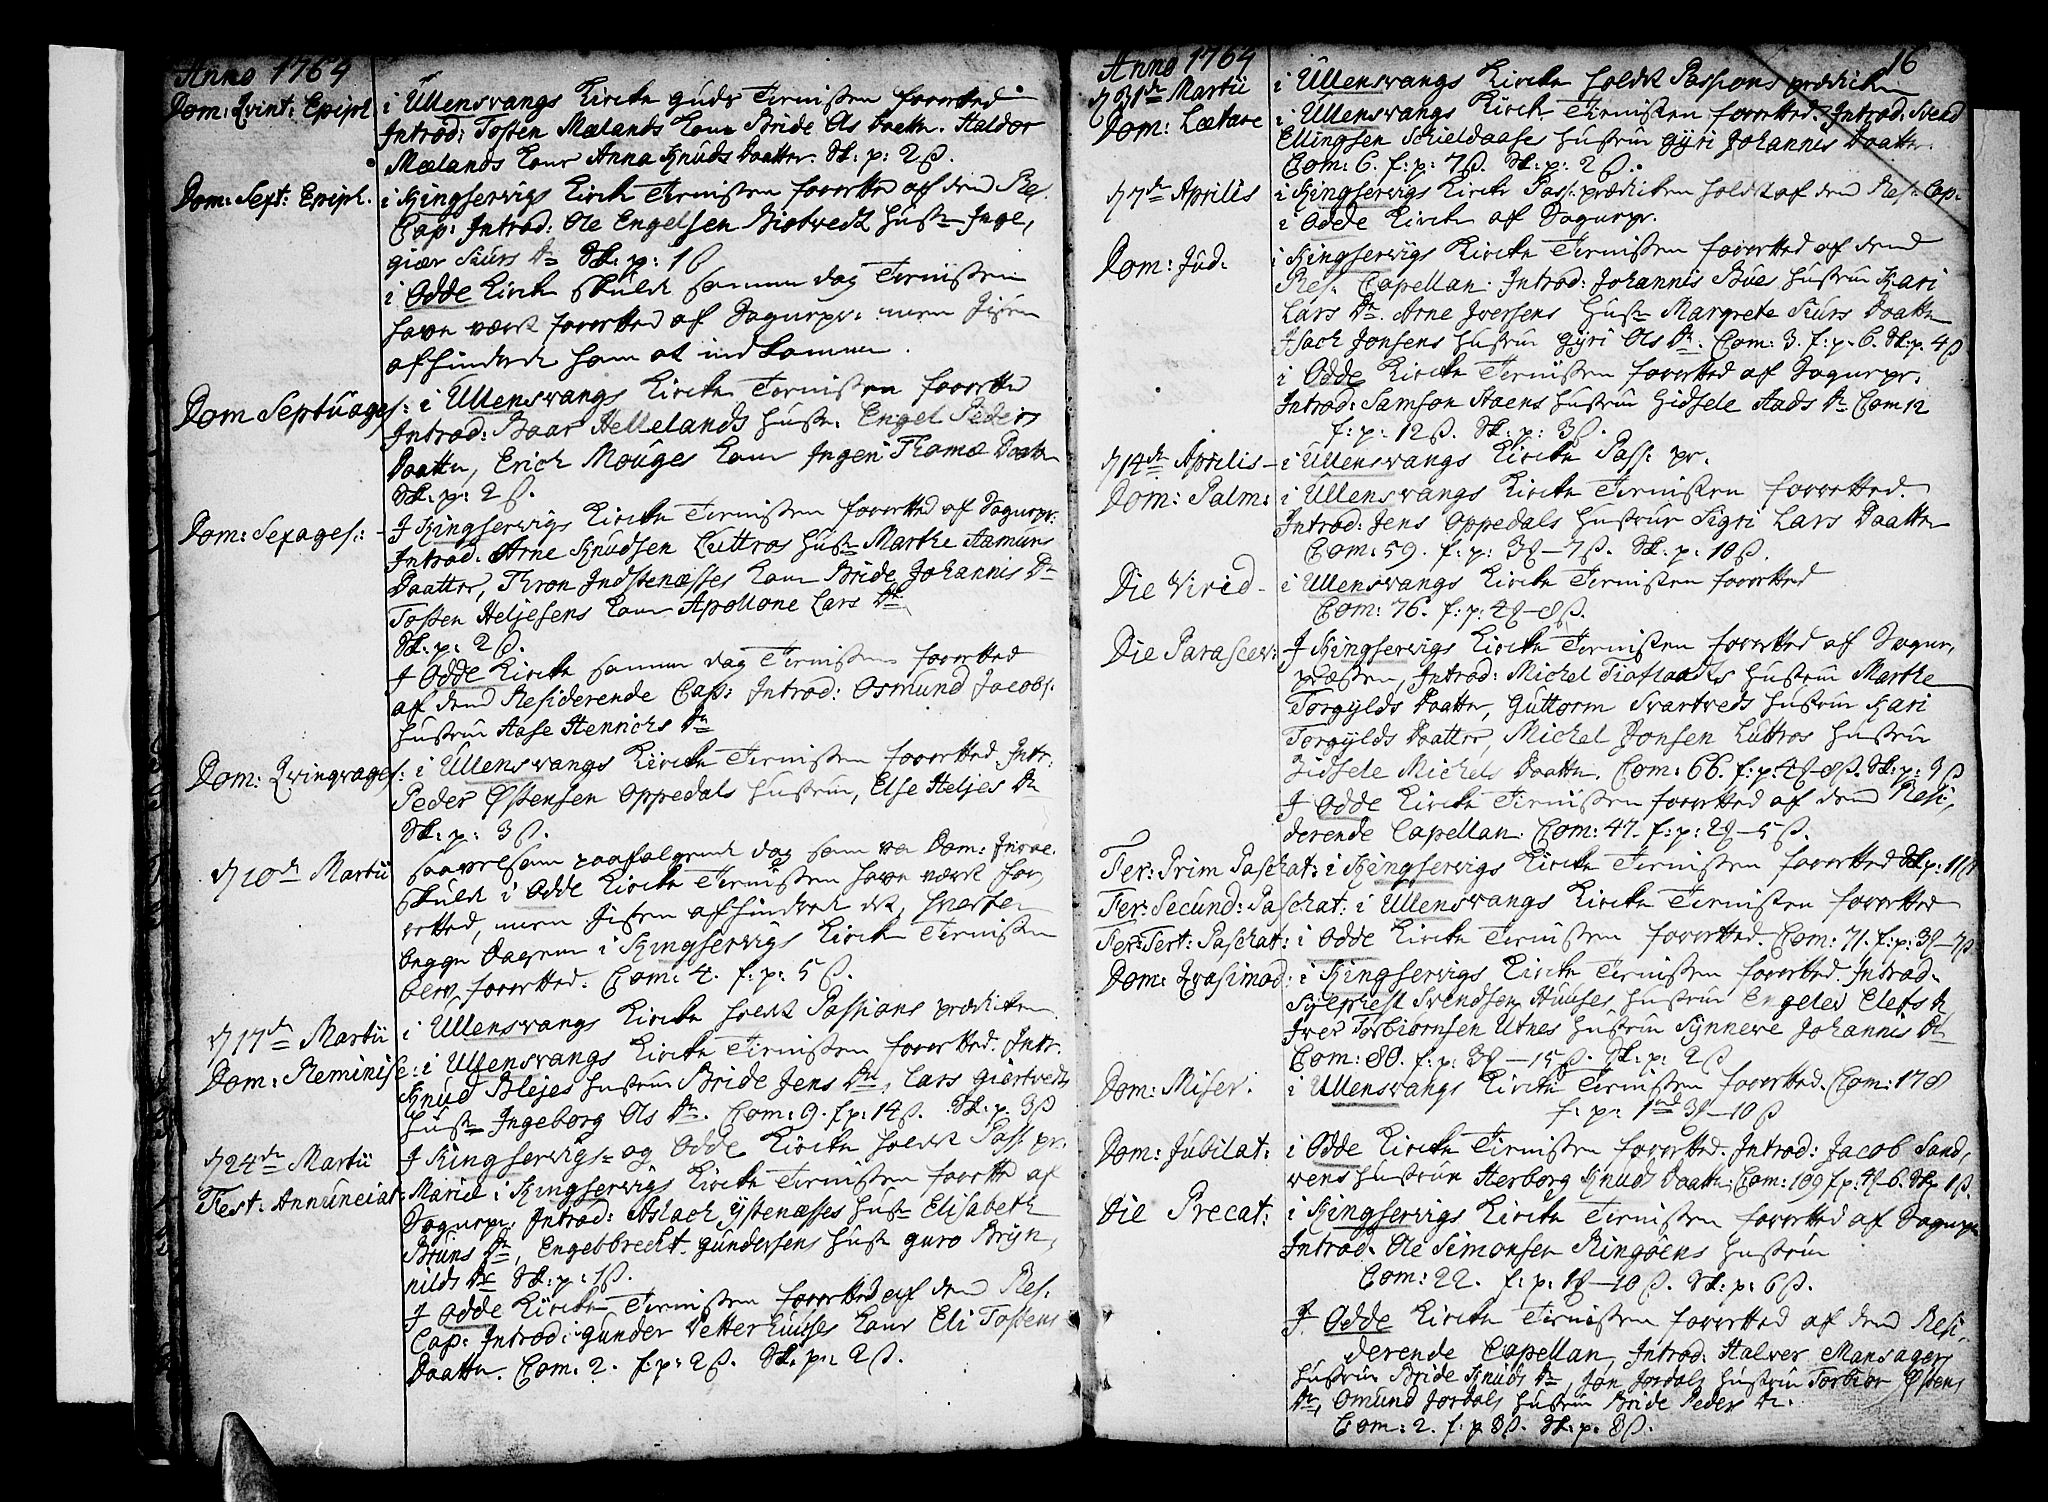 Anno 1764
Dom: Qvint: Epiph. i Ullensvangs Kircke Guds Tienisten forretted
Introd: Tosten Mælands Kone Bride Ols Daatter. Haldor
Mælands Kone Anna Knuds Daatter. Sk: p: 2 ß.
Dom: Sext: Epiph. i Kingservigs Kirck Tienisten forretted af dend Res.
Cap: Introd: Ole Engelsen Biotvedt Hust: Inge,
giær Siurs Dr Sk: p: 1 ß
i Odde Kircke skulde samme dag Tieniisten
have vært forretted af Sognepr: men Iisen
afhindrede ham at indkomme.
Dom Septuages: i Ullensvangs Kircke Tienisten forretted
Introd: Baar Hellelands Hustr. Engel Peders
Daatter, Erich Mouges Kone Ingeri Thomæ Daatter
Sk: p: 2 ß.
Dom: Sexages: - I Kingservigs Kircke Tienisten forretted af Sognepr:
Introd: Arne Knudsen Luttros Hust: Marthe Aamuns
Daatter, Thron Indstenæsses Kone Bride Johannis Dr
Tosten Heljesens Kone Apollone Lars Dr.
Sk: p: 2 ß.
I Odde Kircke samme dag Tienisten forretted
af dend Residerende Cap: Introd: Osmund Jacobs.
Hustrue Aase Henrichs Dr
Dom: Qvinqvages: i Ullensvangs Kircke Tienisten forretted Intr:
Peder Østensen Oppedals Hustrue, Else Heljes Dr
Sk: p: 3 ß.
d 10de Martii saavelsom paafølgende dag som va Dom: Invoc.
skulde i Odde Kircke Tienisten have vært for,
retted, men Iisen afhindrede det, hvorfor
begge Dagene i Kingservigs Kircke Tienisten
blev forretted. Com: 4. f: p: 5 ß.
d 17de Martii i Ullensvangs Kircke holdt Passions prædicken
Dom: Reminisc: i Ullensvangs Kircke Tienisten forretted. Intr:
Knud Blejes Hustrue Bride Jens Dr, Lars Giertvedts
Hust: Ingeborg Ols Dr. Com: 9. f: p: 14 ß. Sk: p: 3 ß
d 24de Martii I Kingservigs- og Odde Kircke holdt Pass: pr.
Fest: Annunciat: Mariæ i Kingservigs Kircke Tienisten forretted af
Sognepr: Introd: Aslach Ystenæsses Hust: Elisabeth
Bruns Dr, Engebbrecht Gundersens Hust: Guro Bryn,
nilds Dr Sk: p: 1 ß.
I Odde Kircke Tienisten forretted af dend Res:
Cap: Introd: Gunder Vetterhuuses Kone Eli Tostens
Daatter. Com: 2. f: p: 2 ß. Sk: p: 2 ß.
16
Anno 1764
d 31de Martii i Ullensvangs Kircke holdt Passions prædicken
Dom: Lætare i Ullensvangs Kircke Tienisten forretted. Introd: Svend
Ellingsen Schieldaases Hustrue Gyri Johannis Daatter.
Com: 6. f: p: 7 ß. Sk: p: 2 ß.
d 7de Aprilis i Kingservigs Kircke Pass: prædicken holdt af dend Res: Cap:
i Odde Kircke af Sognepr.
Dom: Jud: i Kingservigs Kircke Tienisten forretted af dend
Res: Capellan. Introd: Johannis Bues Hustrue Kari
Lars Dr. Arne Iversens Hust: Margrete Siurs Daatter
Isach Jonsens Hustrue Gyri Ols Dr. Com: 3. f: p. 6. Sk: p. 4 ß
i Odde Kircke Tieniisten forretted af Sognepr.
Introd: Samson Aaens Hustrue Gidsele Aads Dr Com 12
f: p: 12 ß. Sk: p: 3 ß.
d 14de Aprilis - i Ullensvangs Kircke Pass: pr.
Dom: Palm: i Ullensvangs Kircke Tienisten forretted.
Introd: Jens Oppedals Hustrue Sigri Lars Daatter
Com: 59. f: p: 3 — 7 ß. Sk: p: 10 ß.
Die Virid - i Ullensvangs Kircke Tienisten forretted
Com: 76. f: p: 4 — 8 ß.
Die Parascev: I Kingservigs Kircke Tienisten forretted af Sogne,
præsten, Introd: Michel Tioflaadts Hustrue Marthe
Torgylds Daatter, Guttorm Svartveds Hustrue Kari
Torgylds Daatter, Michel Jonsen Luttros Hustrue
Gidsele Michels Daatter. Com: 66. f: p: 4 — 8 ß. Sk: p: 9 ß
I Odde Kircke Tienisten forretted af dend Resi,
derende Capellan. Com: 47. f: p: 2 — 5 ß.
Fer: Prim Paschat: i Kingservigs Kircke Tienisten forretted Sk p: 11 ß
Fer: Secund: Paschat: i Ullensvangs Kircke Tienisten forretted
Fer: Tert: Paschat: i Odde Kircke Tienisten forretted. Com: 71. f: p: 3 — 7 ß
Dom: Qvasimod: i Kingservigs Kircke Tienisten forretted. Introd.
Svendsen Huuses Hustrue Engelev Elefs Dr
Iver Torbiørnsen Utnes Hustrue Synneve Johannis Dr
Com: 80. f: p: 3 — 15 ß. Sk: p: 2 ß
Dom: Miser: i Ullensvangs Kircke Tienisten forretted. Com: 178
f: p: 1 3 — 10 ß
Dom: Jubilat: i Odde Kircke Tienisten forretted. Introd: Jacob Sand,
vens Hustrue Herborg Knuds Daatter. Com: 109 f: p: 4 — 6. Sk p 1 ß.
Die Precat: i Kingservigs Kircke Tienisten forretted af Sognepr.
Introd. Ole Simonsen Ringøens Hustrue
Com: 22. f: p: 1 — 10 ß. Sk: p: 6 ß.
I Odde Kircke Tienisten forretted af dend Resi,
derende Capellan, Introd: Halver Mansagers
Hustrue Bride Knuds Dr, Jon Jordals Hustrue Torbior Østens
Dr, Omund Jordals Hustrue Bride Peders Dr.
Com: 2. f: p 8 ß. Sk: p: 8 ß.